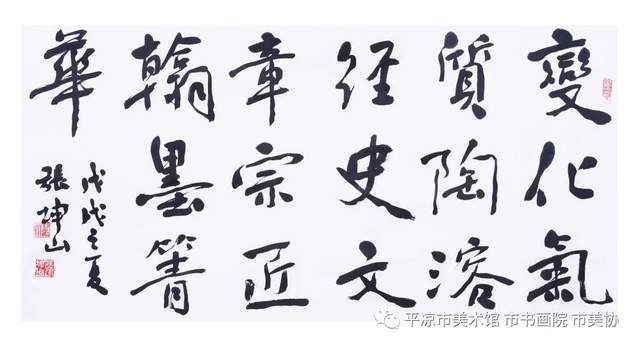 變化氣
質陶溶
经史文
章宗匠
翰墨箐
華
戊戌之夏
張坤山
平凉市美术馆 市书画院 市美协